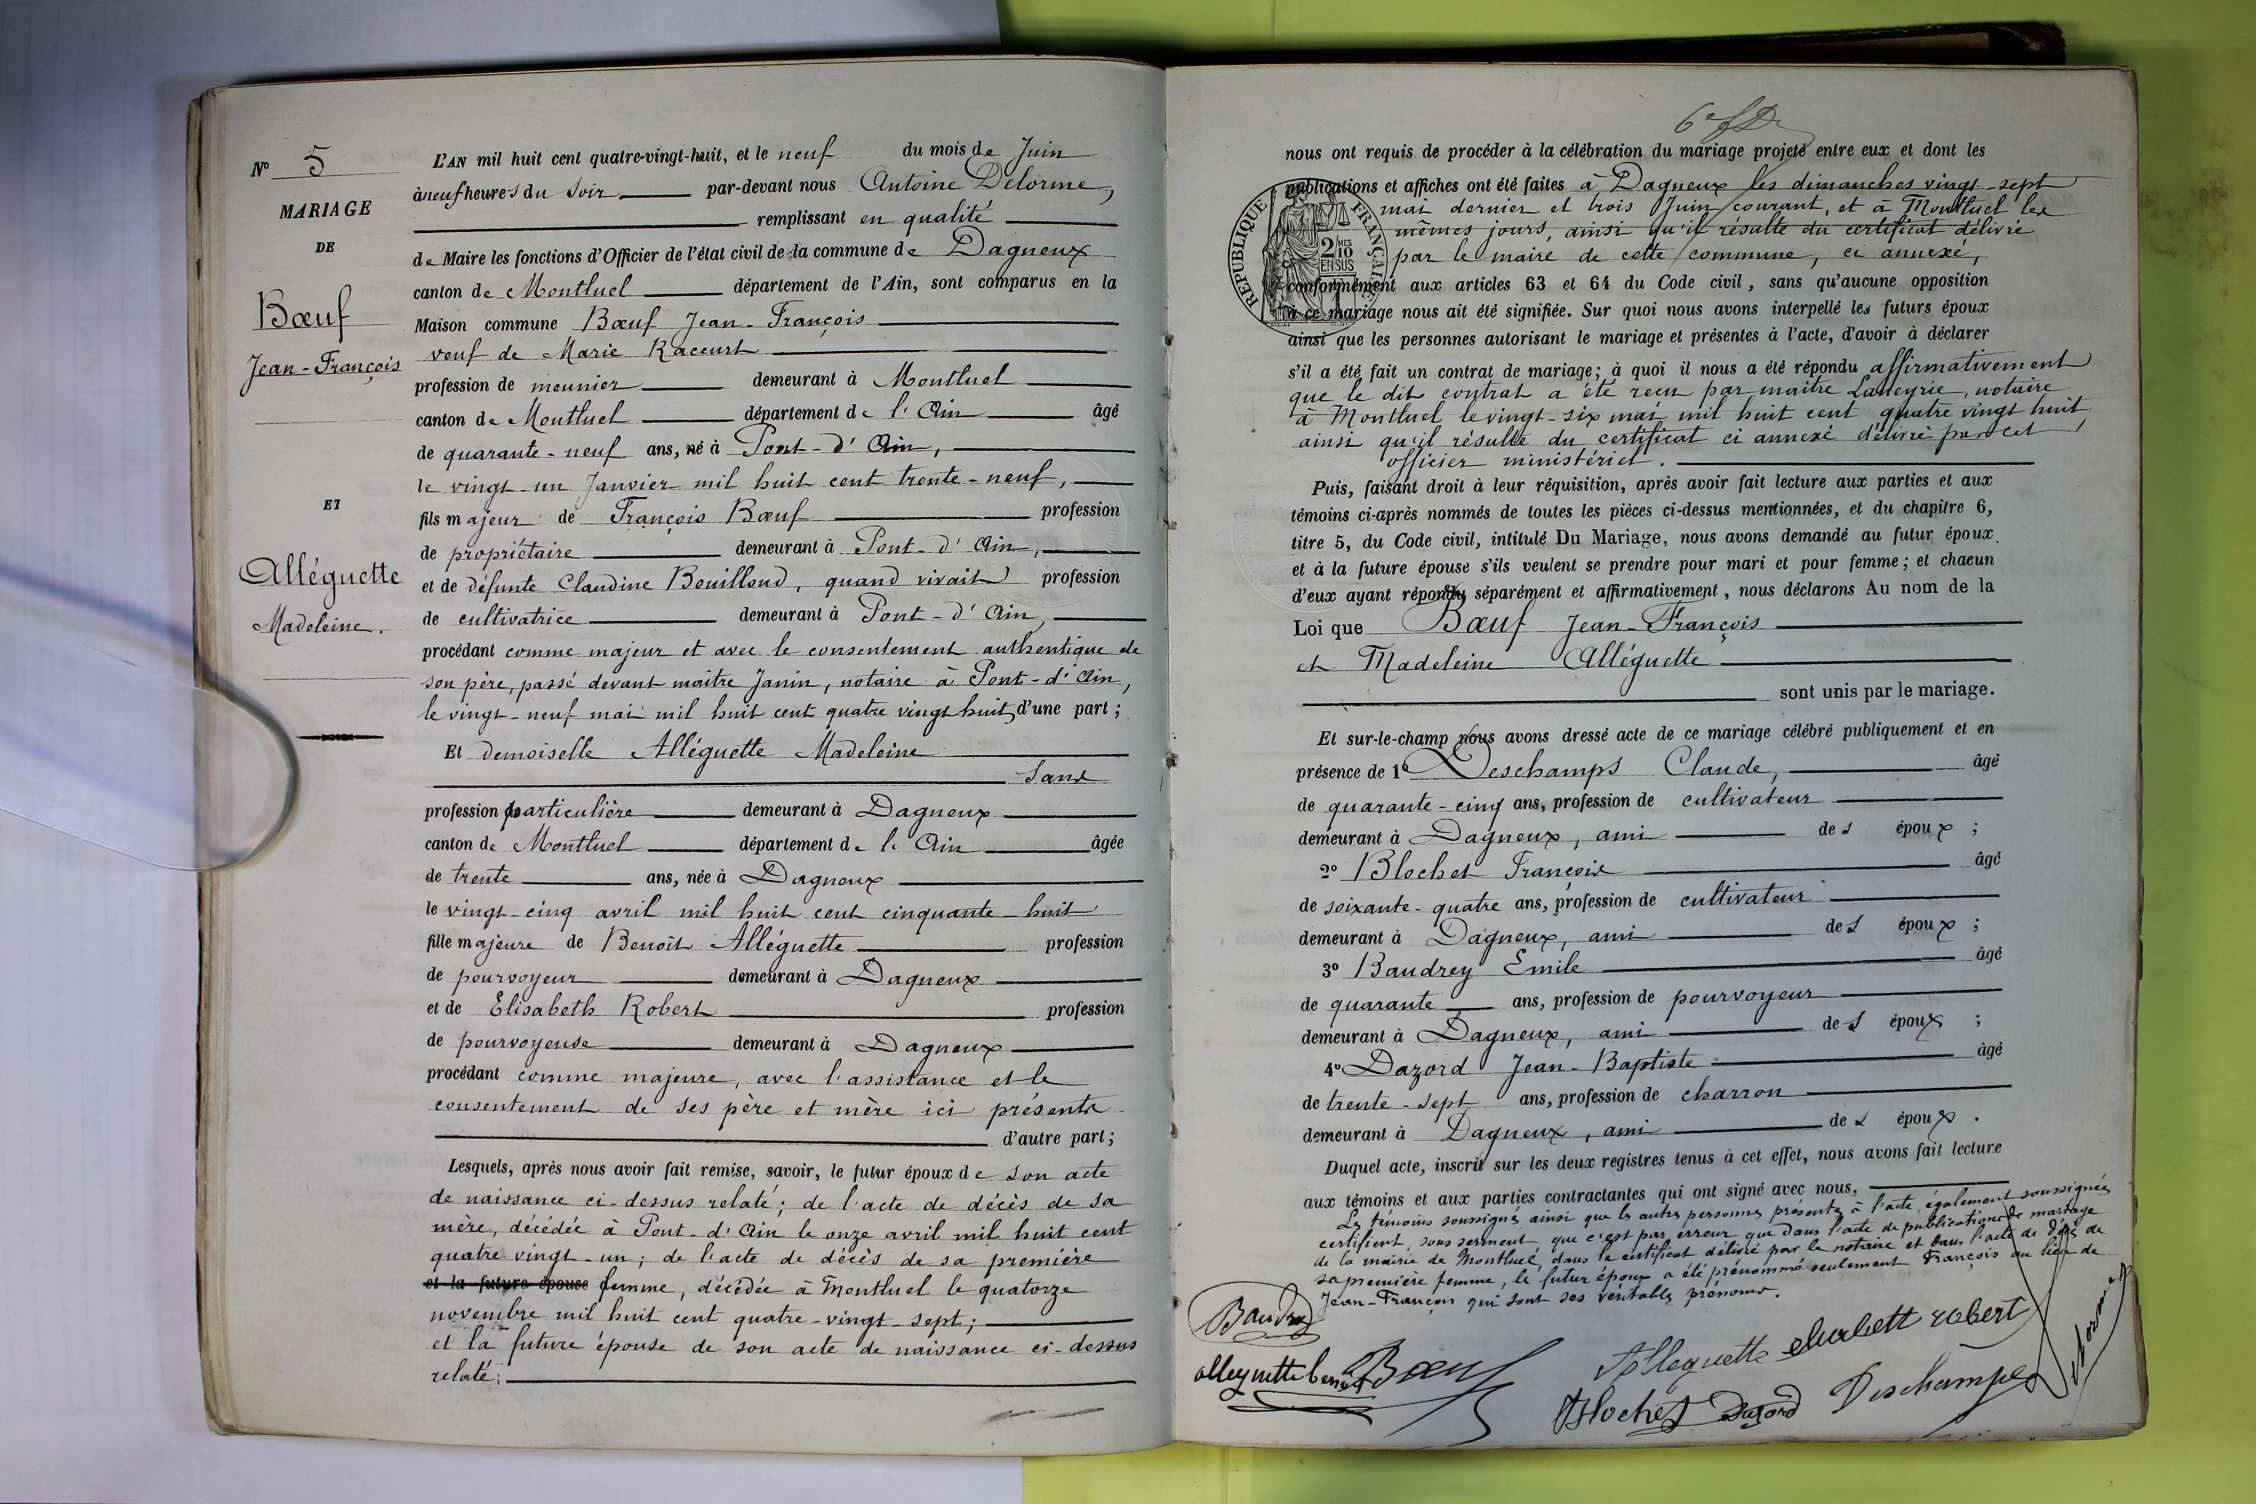 N° 5
MARIAGE
DE
Bœuf
Jean-François
ET
Alléguette
Madeleine.
L'AN mil huit cent quatre-vingt-huit, et le neuf du mois de Juin
à neuf heures du soir par-devant nous Antoine Delorme,
remplissant en qualité
de Maire les fonctions d'Officier de l'état civil de la commune de Dagneux
canton de Montluel département de l'Ain, sont comparus en la
Maison commune Bœuf Jean-François
veuf de Marie Raccurt
profession de meunier demeurant à Montluel
canton de Montluel département de l'Ain âgé
de quarante-neuf ans, né à Pont-d'Ain,
le vingt-un Janvier mil huit cent trente-neuf,
fils majeur de François Bœuf profession
de propriétaire demeurant à Pont-d'Ain,
et de défunte Claudine Bouilloud, quand vivait profession
de cultivatrice demeurant à Pont-d'Ain,
procédant comme majeur et avec le consentement authentique de
son père, passé devant maître Janin, notaire à Pont-d'Ain,
le vingt-neuf mai mil huit cent quatre vingt huit, d'une part;
Et demoiselle Alléguette Madeleine
sans
profession particulière demeurant à Dagneux
canton de Montluel département de l'Ain âgée
de trente ans, née à Dagneux
le vingt-cinq avril mil huit cent cinquante-huit
fille majeure de Benoît Alléguette profession
de pourvoyeur demeurant à Dagneux
et de Elisabeth Robert profession
de pourvoyeuse demeurant à Dagneux
procédant comme majeure, avec l'assistance et le
consentement de ses père et mère ici présents
d'autre part;
Lesquels, après nous avoir fait remise, savoir, le futur époux de son acte
de naissance ci-dessus relaté; de l'acte de décès de sa
mère, décédée à Pont-d'Ain le onze avril mil huit cent
quatre vingt-un; de l'acte de décès de sa première
et la future épouse femme, décédée à Montluel le quatorze
novembre mil huit cent quatre-vingt-sept;
et la future épouse de son acte de naissance ci-dessus
relaté;
nous ont requis de procéder à la célébration du mariage projeté entre eux et dont les
publications et affiches ont été faites à Dagneux les dimanches vingt-sept
mai dernier et trois Juin courant, et à Montluel les
mêmes jours, ainsi qu'il résulte du certificat délivré
par le maire de cette commune, ci annexé,
RÉPUBLIQUE FRANÇAISE
2 MES 10 EN SUS
conformément aux articles 63 et 64 du Code civil, sans qu'aucune opposition
à ce mariage nous ait été signifiée. Sur quoi nous avons interpellé les futurs époux
ainsi que les personnes autorisant le mariage et présentes à l'acte, d'avoir à déclarer
s'il a été fait un contrat de mariage; à quoi il nous a été répondu affirmativement
que le dit contrat a été reçu par maître Laneyrie, notaire
à Montluel le vingt-six mai mil huit cent quatre vingt huit
ainsi qu'il résulte du certificat ci annexé délivré par cet
officier ministériel.
Puis, faisant droit à leur réquisition, après avoir fait lecture aux parties et aux
témoins ci-après nommés de toutes les pièces ci-dessus mentionnées, et du chapitre 6,
titre 5, du Code civil, intitulé Du Mariage, nous avons demandé au futur époux
et à la future épouse s'ils veulent se prendre pour mari et pour femme; et chacun
d'eux ayant répondu séparément et affirmativement, nous déclarons Au nom de la
Loi que Bœuf Jean-François
et Madeleine Alléguette
sont unis par le mariage.
Et sur-le-champ nous avons dressé acte de ce mariage célébré publiquement et en
présence de 1° Deschamps Claude, âgé
de quarante-cinq ans, profession de cultivateur
demeurant à Dagneux, ami des époux;
2° Blochet François âgé
de soixante-quatre ans, profession de cultivateur
demeurant à Dagneux, ami des époux;
3° Baudrey Emile âgé
de quarante ans, profession de pourvoyeur
demeurant à Dagneux, ami des époux;
4° Dazord Jean-Baptiste âgé
de trente-sept ans, profession de charron
demeurant à Dagneux, ami des époux.
Duquel acte, inscrit sur les deux registres tenus à cet effet, nous avons fait lecture
aux témoins et aux parties contractantes qui ont signé avec nous.
Les témoins soussignés ainsi que les autres personnes présentes à l'acte également soussignées
certifient sous serment que c'est par erreur que dans l'acte de publication de mariage
de la mairie de Montluel, dans le certificat délivré par le notaire et dans l'acte de décès de
sa première femme, le futur époux a été prénommé seulement François au lieu de
Jean-François qui sont ses véritables prénoms.
Baudrey
alleguette benoit Bœuf
Alleguette elisabett robert
Blochet Dazord Deschamps
Delorme